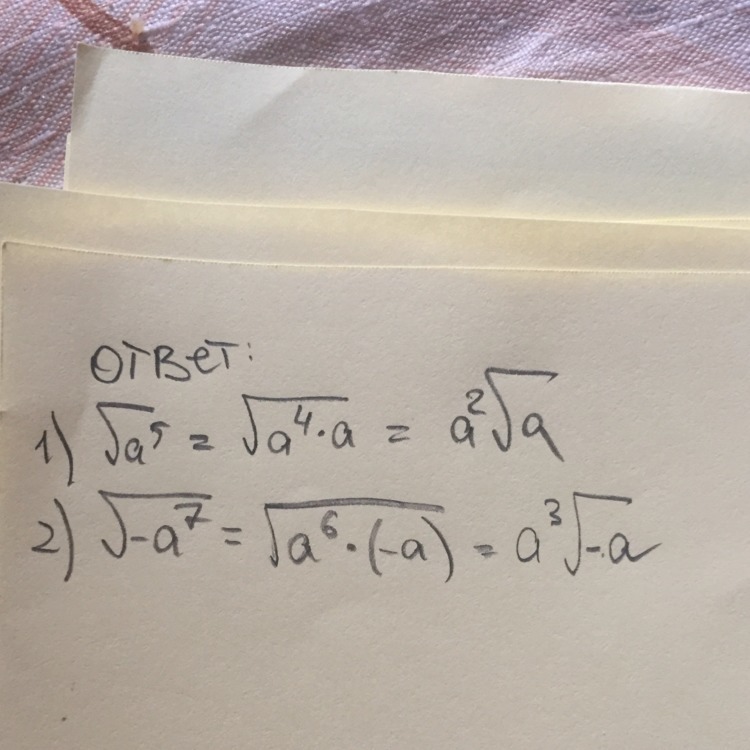 ответ:
1) √a⁵ = √a⁴·a = a²√a
2) √-a⁷ = √a⁶·(-a) = a³√-a